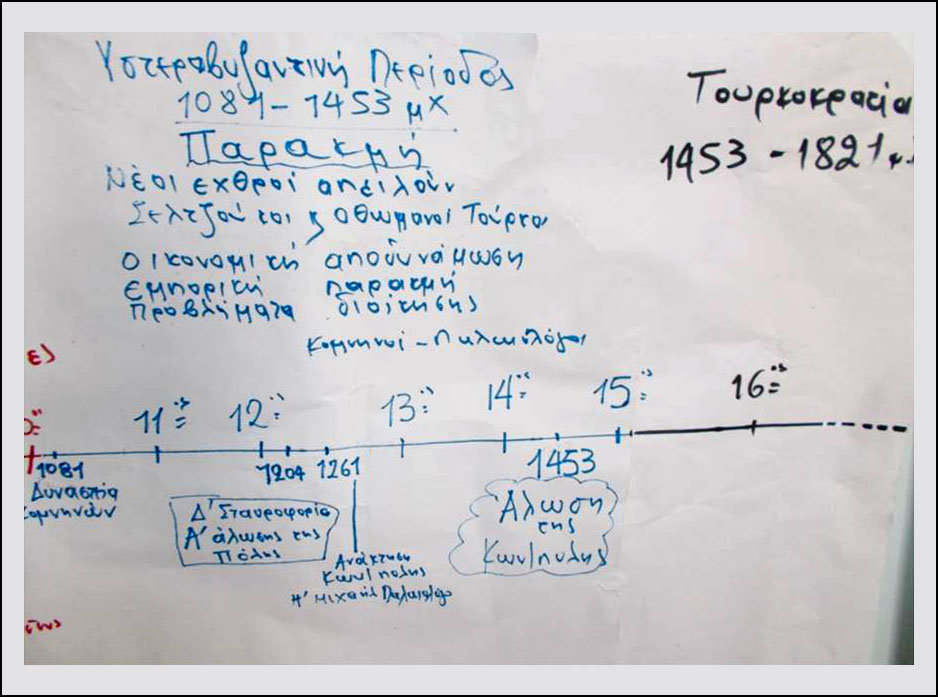 Υστεροβυζαντινή Περίοδος
1081 - 1453 μΧ
Παρακμή
Νέοι εχθροί απειλούν
Σελτζούκοι κ Οθωμανοί Τούρκοι
οικονομική αποδυνάμωση
εμπορική παρακμή
προβλήματα διοίκησης
Κομνηνοί - Παλαιολόγοι
Τουρκοκρατία
1453 - 1821 μ.
ες)
11ος 12ος 13ος 14ος 15ος 16ος
1081 1204 1261 1453
Δυναστεία
Κομνηνών
Δ' Σταυροφορία
Α' άλωσης της
Πόλης
Ανάκτηση
Κων/πολης
Μιχαήλ
Άλωση
της
Κων/πολης